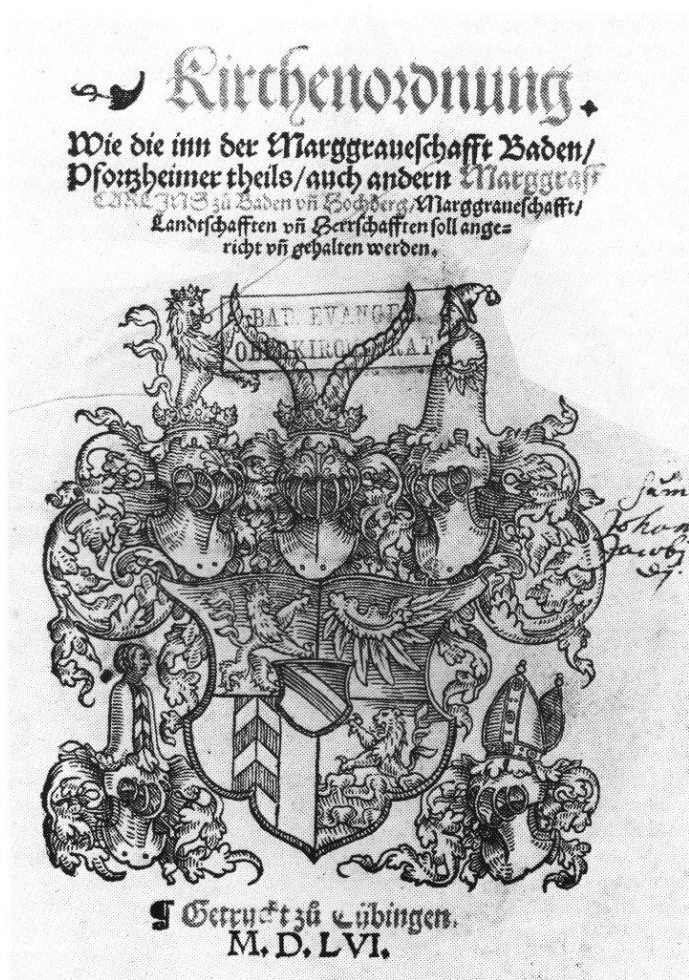 Kirchenordnung.
Wie die inn der Marggraueschafft Baden/
Pfortzheimer theils/auch andern Marggraff
CARLINS zů Baden vñ Hochberg/Marggraueschafft/
Landtschafften vñ Herrschafften soll ange=
richt vñ gehalten werden.
BAD. EVANGEL.
OBERKIRCHENRAT
Sum
Johan
Jacobj
¶ Getruckt zů Tübingen.
M. D. LVI.